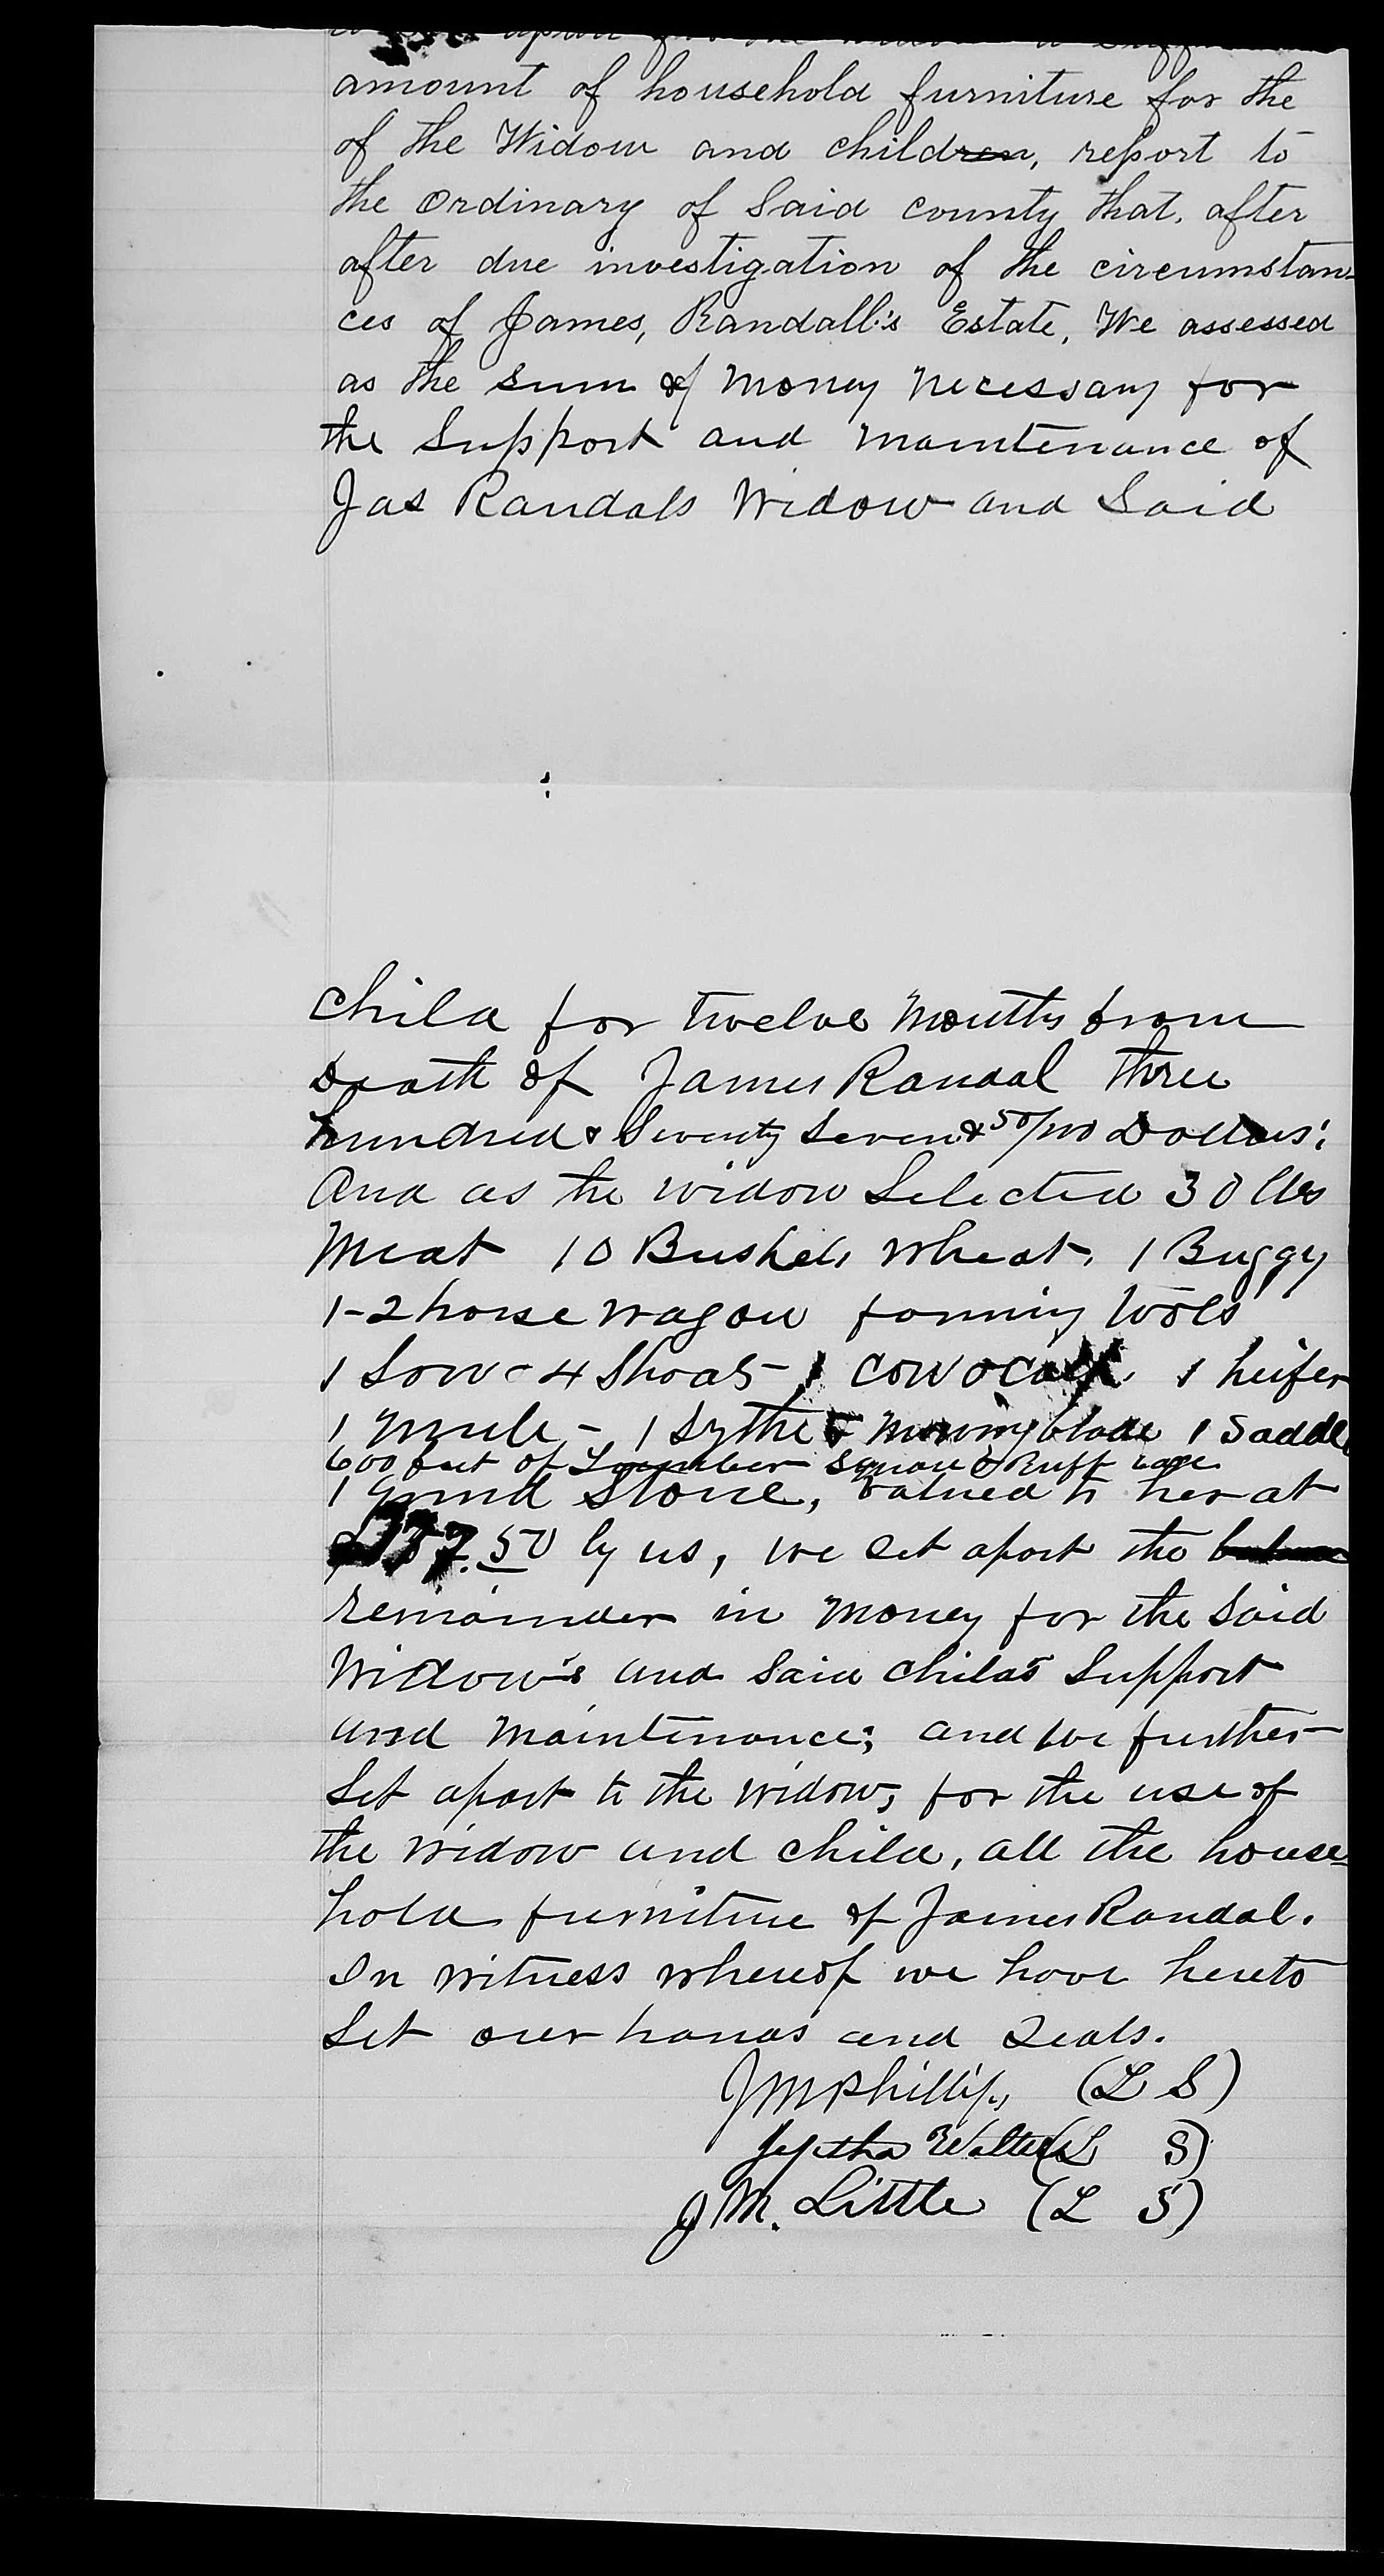 amount of household furniture for the
of the Widow and children, report to
the Ordinary of Said county that, after
after due investigation of the circumstan-
ces of James, Randall's Estate, We assessed
as the sum of money necessary for
the Support and maintenance of
Jas Randals Widow and Said
child for twelve months from
death of James Randal three
hundred & Seventy Seven & 50/100 Dollars;
And as the widow Selected 30 lbs
Meat 10 Bushels wheat, 1 Buggy
1-2 horse wagon farming tools
1 Sow - 4 Shoats - 1 cow & calf 1 heifer
1 mule - 1 Sythe & mowing blade 1 Saddle
600 feet of Lumber Square & Ruff
1 grind Stone, valued to her at
.50 by us, we set apart the
remainder in money for the Said
Widow's and said childs Support
and maintenance; and we further
Set apart to the widow, for the use of
the widow and child, all the house-
hold furniture of James Randal.
In witness whereof we have hereto
Set our hands and Seals.
J M Phillips (L S)
Walters (L S)
J M. Little (L S)